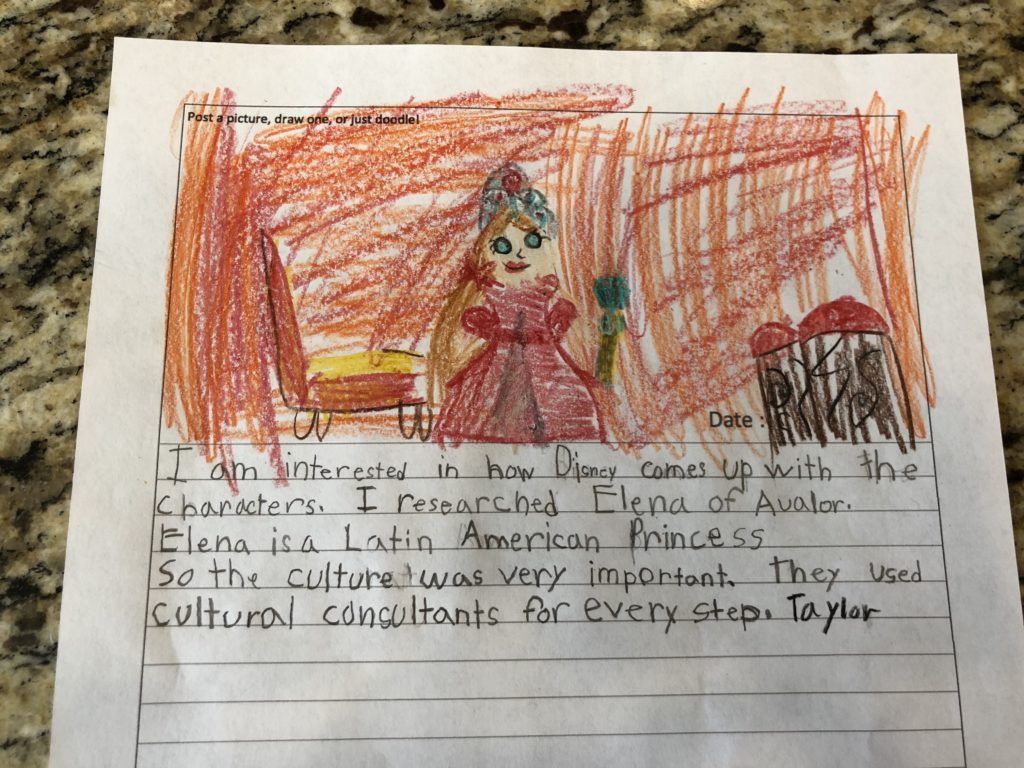 Post a picture, draw one, or just doodle!
Date :
I am interested in how Disney comes up with the
characters. I researched Elena of Avalor.
Elena is a Latin American Princess
So the culture was very important. They used
cultural consultants for every step. Taylor